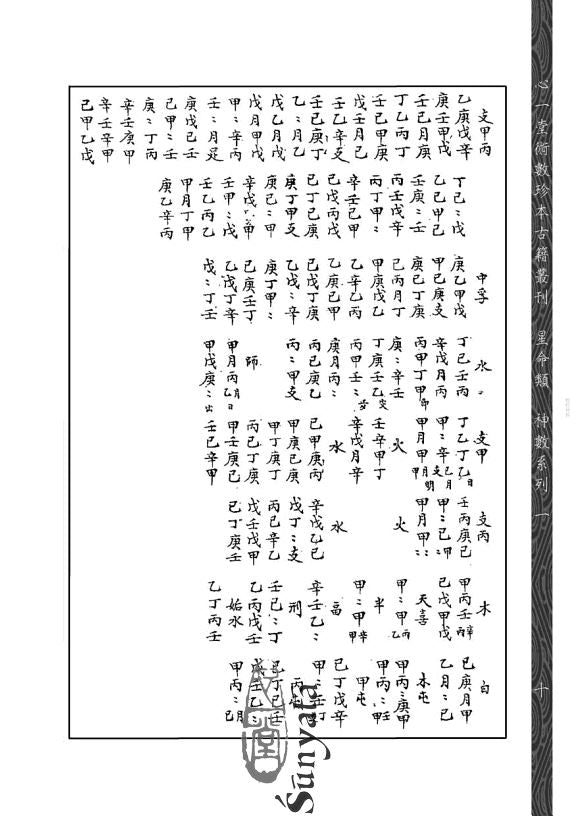 心一堂術數珍本古籍叢刊 星命類 神數系列 一
十
支甲丙
乙庚戊辛
庚壬甲戊
壬己月庚
丁乙丙丁
壬己甲庚
戊壬月己
壬乙辛支
壬己庚丁
乙：月乙
戊乙月戊
戊月甲戊
甲：辛丙
壬：月足
庚戊己壬
己甲：壬
庚：丁丙
辛壬庚甲
辛壬辛甲
己甲乙戊
丁己：戊
乙己甲己
壬庚：壬
丙壬戊辛
丙丁甲：
辛壬己甲
己戊丙戊
己丁己庚
庚丁甲支
庚己：甲
辛戊：甲
壬甲：戊
壬乙丙乙
甲月丁甲
庚乙辛丙
中孚
庚乙甲戊
甲己庚支
庚己丁庚
己丙月丁
甲庚戊乙
乙辛乙丙
乙庚己甲
己戊丁庚
乙戊：辛
庚丁甲：
己庚壬丁
乙戊丁辛
戊：丁壬
水：
丁己壬丙
辛戊月丙
丙甲丁甲
庚：辛壬
丁庚壬乙
丙甲壬：
庚月丙：
丙己庚乙
丙：甲支
師
甲月丙乙月日
甲戊庚：
支甲
丁乙丁乙日
甲：辛支
甲月甲
火
壬辛甲丁
辛戊月辛
水
己甲庚丙
甲庚己庚
甲丁庚丁
丙己丁庚
甲壬庚己
壬己辛甲
支丙
壬丙庚己
甲：己：甲
甲月甲：
火
水
辛戊乙己
戊丁：支
丙己辛乙
戊壬戊甲
己丁庚壬
木
甲丙壬丙辛
己戊甲戊
天喜
甲：甲乙丙
半
甲：甲甲辛
畐
辛壬乙：
刑
壬己：丁
乙丙戊壬
始水
乙丁丙壬
白
己庚月甲
乙月：己
木屯
甲丙：庚甲
甲丙：甲壬
甲屯
己丁戊辛
甲：壬丁
己丁己壬
甲丙：己月
心一堂
Śūnyatā